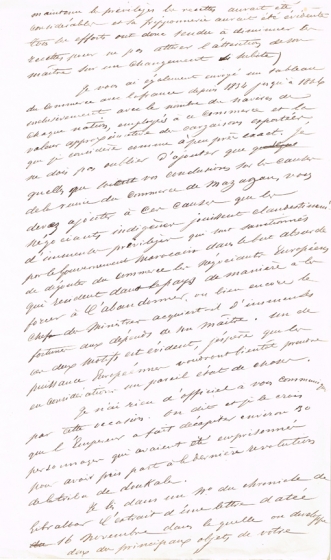 maintenu le privilège la recette aurait été
considérable et la friponnerie aurait été évidente
tous les efforts ont donc tendu à diminuer les
recettes pour ne pas attirer l'attention de son
maître sur un changement
Je vous ai également envoyé un tableau
du Commerce avec la france depuis 1834 jusqu'à 1844
avec le nombre de navires de
chaque nation, employés à ce commerce et la
valeur approximative des cargaisons exportées,
que je considère comme à peu près exact. Je
ne dois pas oublier d'ajouter que
quelles que soient vos conclusions sur la cause
de la ruine du commerce de Mazagan, vous
devez ajouter à ces causes que les
négociants indigènes jouissent clandestinement
d'immenses privilèges qui sont sanctionnés
par le Gouvernement Marocain dans le but absurde
de dégouter du commerce les négociants Européens
qui resident dans le pays de manière à les
forcer à l'abandonner, ou bien encore le
chef du Ministre acquiert d'immenses
fortune aux dépens de son maître. Un de
ces deux motifs est évident, j'espère que les
puissances Européennes voudront bientôt prendre
en considération un pareil état de choses.
Je n'ai rien d'officiel à vous communiquer
par cette occasion. On dit et je le crois
que l'Empereur a fait décapiter environ 30
personnages qui avaient été emprisonnés
pour avoir pris part à la dernière révolution
de la tribu de duckala.
J'ai lu dans un No du chronicle de
Gibraltar l'extrait d'une lettre datée
16 Novembre dans laquelle on
deux des principaux objets de votre